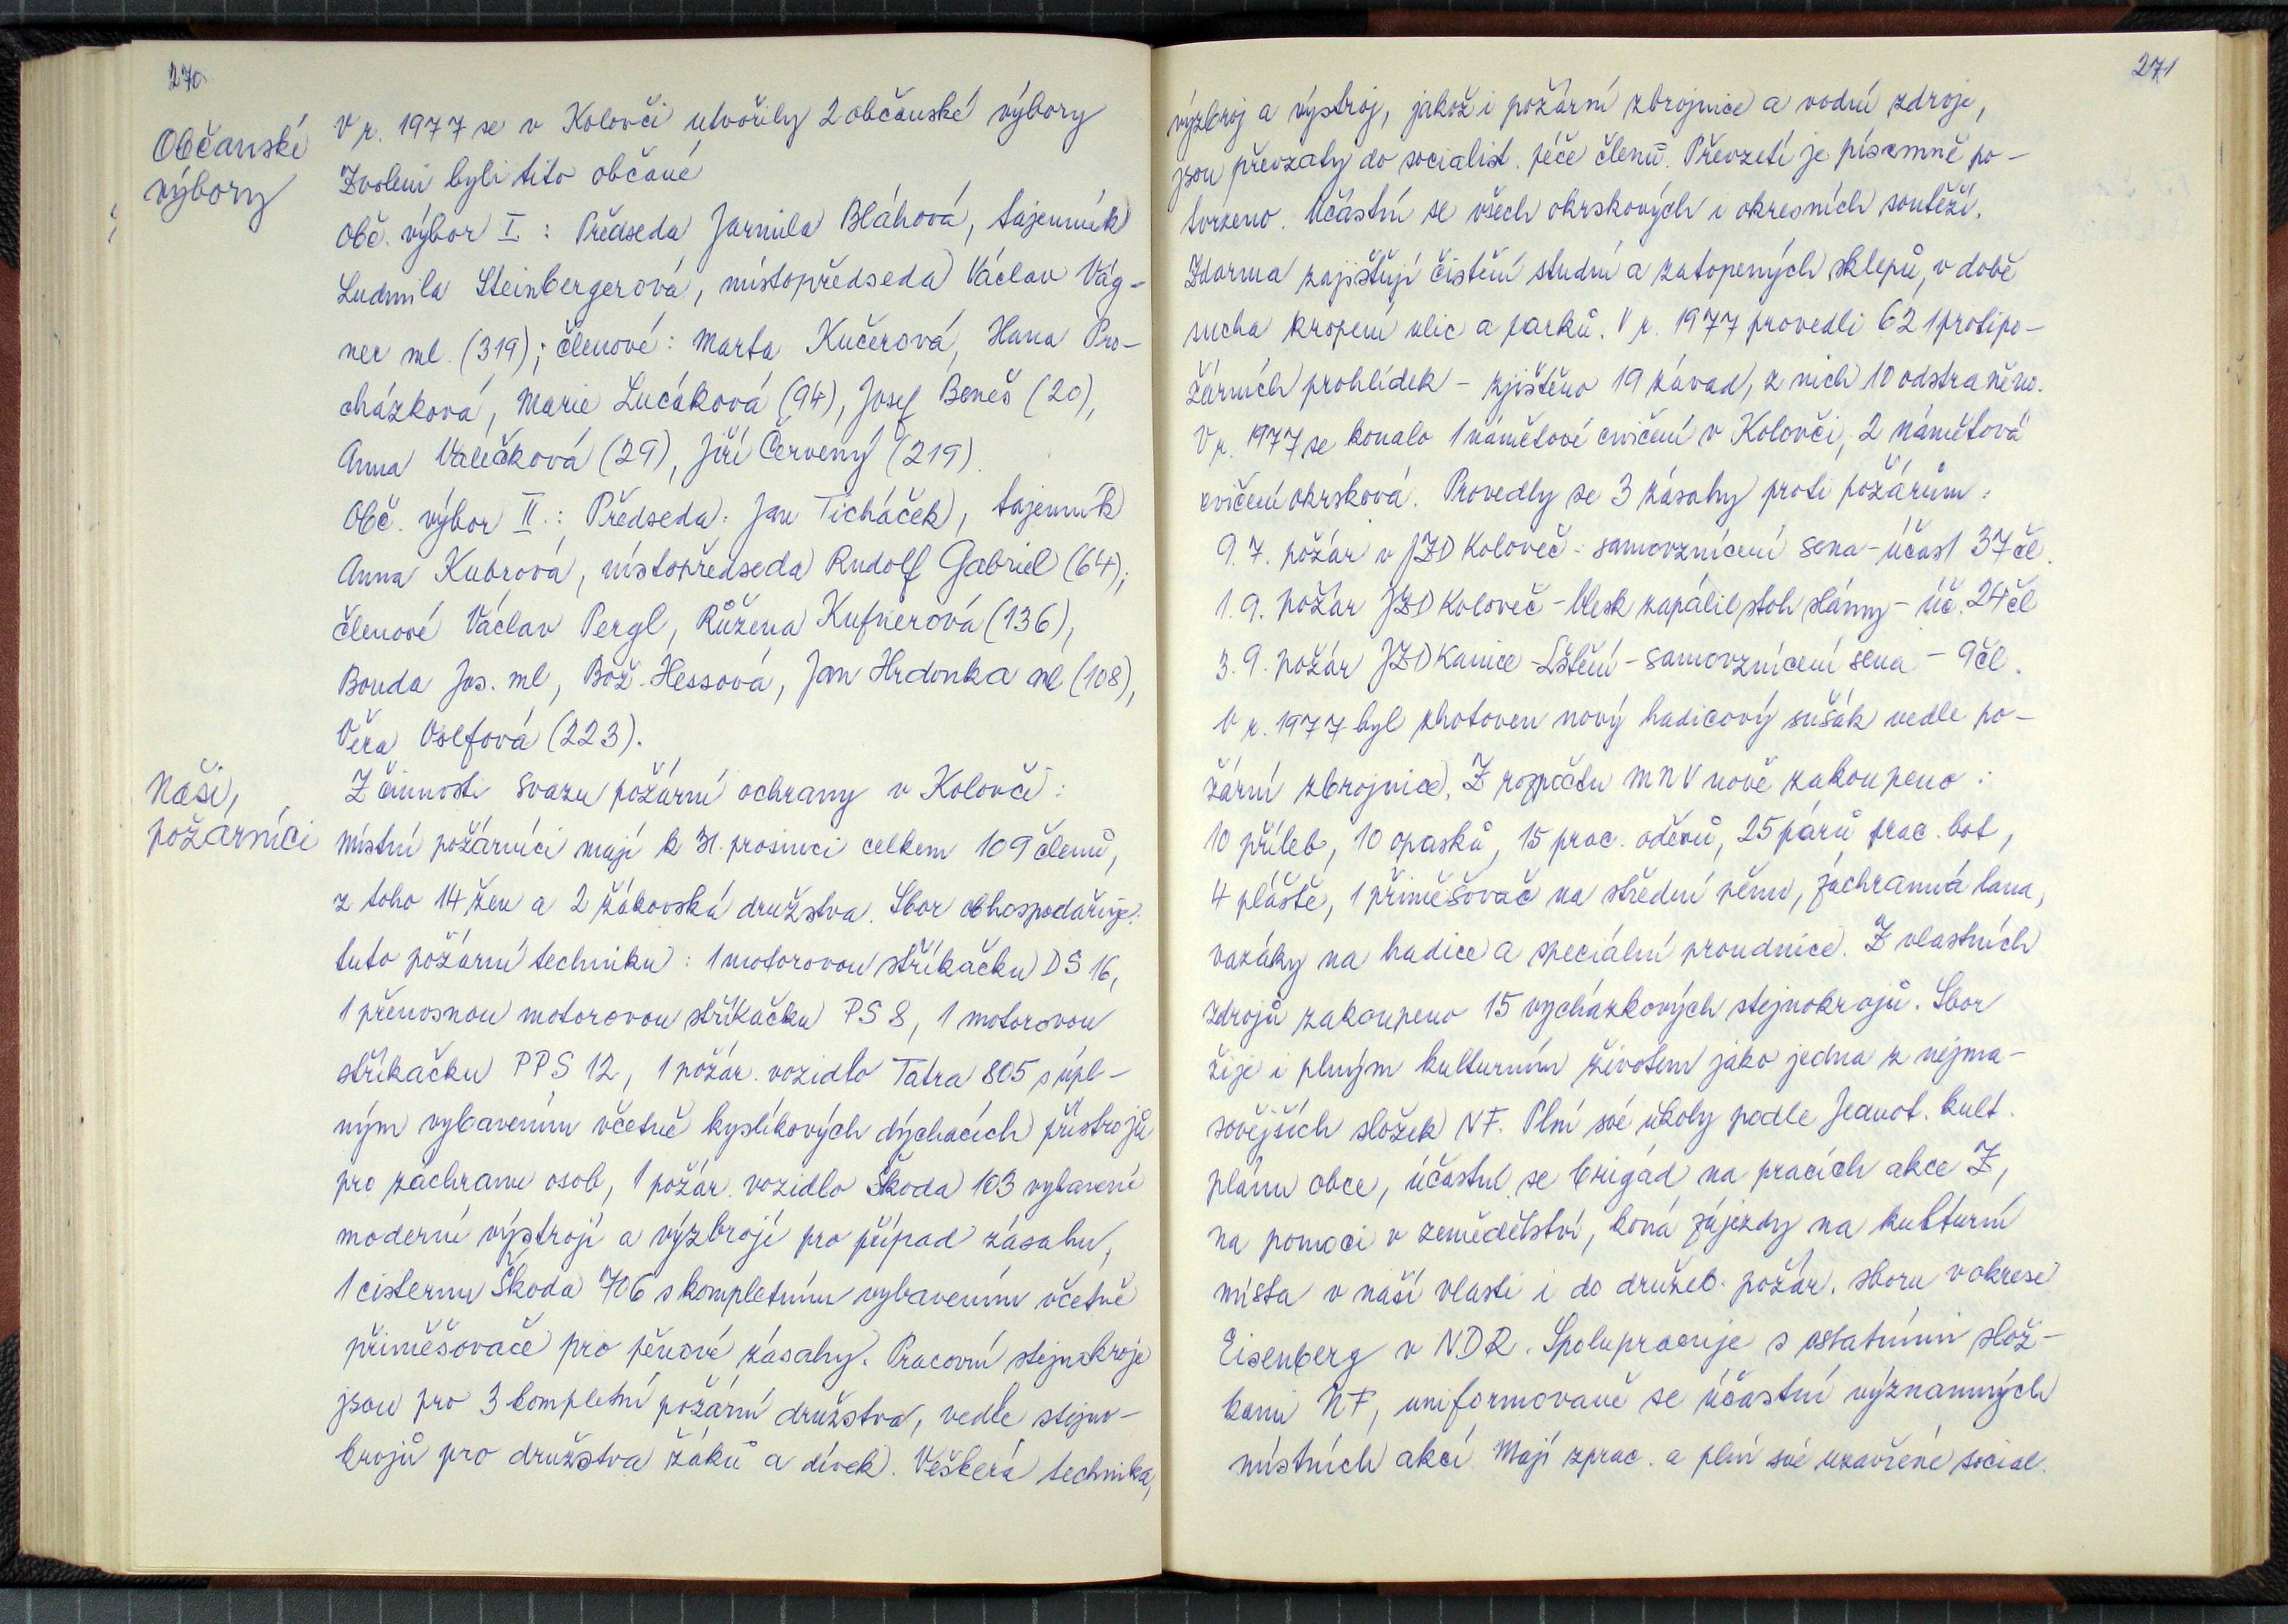 270
Občanské
výbory
V r. 1977 se v Kolovči utvořily 2 občanské výbory
Zvoleni byli tito občané
Obč. výbor I : Předseda Jarmila Bláhová, tajemník
Ludmila Steinbergerová, místopředseda Václav Vág-
ner ml. (319); členové: Marta Kučerová, Hana Pro-
cházková, Marie Lucáková (94), Josef Beneš (20),
Anna Valečková (29), Jiří Červený (219).
Obč. výbor II.: Předseda: Jan Ticháček, tajemník
Anna Kubrová, místopředseda Rudolf Gabriel (64);
členové Václav Pergl, Růžena Kufnerová (136),
Bouda Jos. ml, Bož. Hessová, Jan Hrdonka ml (108),
Věra Volfová (223).
Naši
požárníci
Z činnosti svazu požární ochrany v Kolovči:
místní požárníci mají k 31. prosinci celkem 109 členů,
z toho 14 žen a 2 žákovská družstva. Sbor obhospodařuje
tuto požární techniku: 1 motorovou stříkačku DS 16,
1 přenosnou motorovou stříkačku PS 8, 1 motorovou
stříkačku PPS 12, 1 požár. vozidlo Tatra 805 s úpl-
ným vybavením včetně kyslíkových dýchacích přístrojů
pro záchranu osob, 1 požár. vozidlo Škoda 103 vybavené
moderní výstrojí a výzbrojí pro případ zásahu,
1 cisternu Škoda 706 s kompletním vybavením včetně
přiměšovače pro pěnové zásahy. Pracovní stejnokroje
jsou pro 3 kompletní požární družstva, vedle stejno-
krojů pro družstva žáků a dívek. Veškerá technika,
271
výzbroj a výstroj, jakož i požární zbrojnice a vodní zdroje,
jsou převzaty do socialist. péče členů. Převzetí je písemně po-
tvrzeno. Účastní se všech okrskových i okresních soutěží.
Zdarma zajišťují čistění studní a zatopených sklepů, v době
sucha kropení ulic a parků. V r. 1977 provedli 621 protipo-
žárních prohlídek - zjištěno 19 závad, z nich 10 odstraněno.
V r. 1977 se konalo 1 námětové cvičení v Kolovči, 2 námětová
cvičení okrsková. Provedly se 3 zásahy proti požárům:
9. 7. požár v JZD Koloveč - samovznícení sena - účast 37 čl.
1. 9. požár JZD Koloveč - blesk zapálil stoh slámy - úč. 24 čl
3. 9. požár JZD Kanice - Lštění - samovznícení sena - 9 čl.
V r. 1977 byl zhotoven nový hadicový sušák vedle po-
žární zbrojnice. Z rozpočtu MNV nově zakoupeno:
10 přileb, 10 opasků, 15 prac. oděvů, 25 párů prac. bot,
4 pláště, 1 přiměšovač na střední pěnu, záchranná lana,
vazáky na hadice a speciální proudnice. Z vlastních
zdrojů zakoupeno 15 vycházkových stejnokrojů. Sbor
žije i plným kulturním životem jako jedna z nejma-
sovějších složek NF. Plní své úkoly podle Jednot. kult.
plánu obce, účastní se brigád na pracích akce Z,
na pomoci v zemědělství, koná zájezdy na kulturní
místa v naší vlasti i do družeb. požár. sboru v okrese
Eisenberg v NDR. Spolupracuje s ostatními slož-
kami NF, uniformovaně se účastní významných
místních akcí. Mají zprac. a plní své uzavřené social.